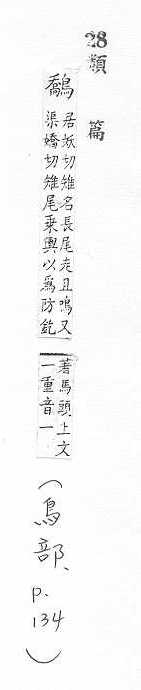 28類篇
鷮
居妖切雉名長尾走且鳴又
渠嬌切雉尾乗輿以爲防釳
著馬頭上文
一重音一
(鳥部、p.134)